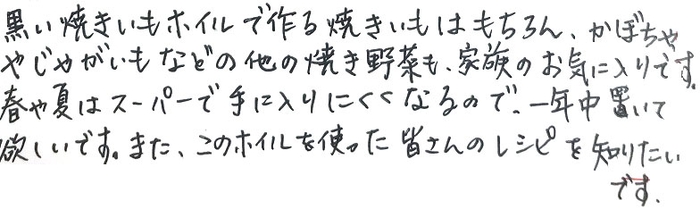 黒い焼きいもホイルで作る焼きいもはもちろん、かぼちゃ
やじゃがいもなどの他の焼き野菜も、家族のお気に入りです。
春や夏はスーパーで手に入りにくくなるので、一年中置いて
欲しいです。また、このホイルを使った皆さんのレシピを知りたい
です。